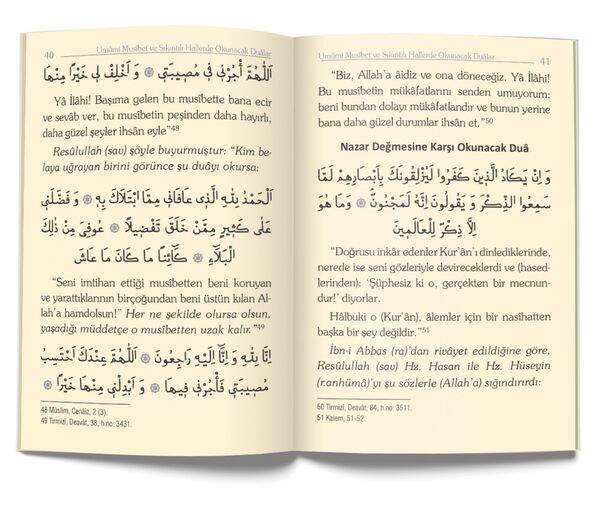 40
Umûmî Musîbet ve Sıkıntılı Hallerde Okunacak Duâlar
اَللّٰهُمَّ اْجُرْن۪ي ف۪ي مُص۪يبَت۪ي ۞ وَ اَخْلِفْ ل۪ي خَيْرًا مِنْهَا
Yâ İlâhi! Başıma gelen bu musîbette bana ecir
ve sevâb ver, bu musîbetin peşinden daha hayırlı,
daha güzel şeyler ihsan eyle”48
Resûlullah (sav) şöyle buyurmuştur: “Kim be-
laya uğrayan birini görünce şu duâyı okursa:
اَلْحَمْدُ لِلّٰهِ الَّذ۪ي عَافَان۪ي مِمَّا ابْتَلَاكَ بِه۪ ۞ وَ فَضَّلَن۪ي
عَلٰى كَث۪يرٍ مِمَّنْ خَلَقَ تَفْض۪يلًا ۞ عُوفِيَ مِنْ ذٰلِكَ
الْبَلَٓاءِ ۞ كَٓائِنًا مَا كَانَ مَا عَاشَ
“Seni imtihan ettiği musîbetten beni koruyan
ve yarattıklarının birçoğundan beni üstün kılan Al-
lah’a hamdolsun!” Her ne şekilde olursa olsun,
yaşadığı müddetçe o musîbetten uzak kalır.”49
اِنَّا لِلّٰهِ وَ اِنَّٓا اِلَيْهِ رَاجِعُونَ ۞ اَللّٰهُمَّ عِنْدَكَ اَحْتَسِبُ
مُص۪يبَت۪ي فَأْجُرْن۪ي ف۪يهَا ۞ وَ اَبْدِلْن۪ي مِنْهَا خَيْرًا ۞
48 Müslim, Cenâiz, 2 (3).
49 Tirmizî, Deavât, 38, h.no: 3431.
Umûmî Musîbet ve Sıkıntılı Hallerde Okunacak Duâlar
41
“Biz, Allah’a âidiz ve ona döneceğiz. Yâ İlâhi!
Bu musîbetin mükâfatlarını senden umuyorum;
beni bundan dolayı mükâfatlandır ve bunun yerine
bana daha güzel durumlar ihsân et.”50
Nazar Değmesine Karşı Okunacak Duâ
وَ اِنْ يَكَادُ الَّذ۪ينَ كَفَرُوا لَيُزْلِقُونَكَ بِاَبْصَارِهِمْ لَمَّا
سَمِعُوا الذِّكْرَ وَ يَقُولُونَ اِنَّهُ لَمَجْنُونٌ ۞ وَمَا هُوَ
اِلَّا ذِكْرٌ لِلْعَالَم۪ينَ
“Doğrusu inkâr edenler Kur’ân’ı dinlediklerinde,
nerede ise seni gözleriyle devireceklerdi ve (hased-
lerinden): ‘Şüphesiz ki o, gerçekten bir mecnun-
dur!’ diyorlar.
Hâlbuki o (Kur’ân), âlemler için bir nasîhatten
başka bir şey değildir.”51
İbn-i Abbas (ra)’dan rivâyet edildiğine göre,
Resûlullah (sav) Hz. Hasan ile Hz. Hüseyin
(r.anhümâ)’yı şu sözlerle (Allah’a) sığındırırdı:
50 Tirmizî, Deavât, 84, h.no: 3511.
51 Kalem, 51-52.